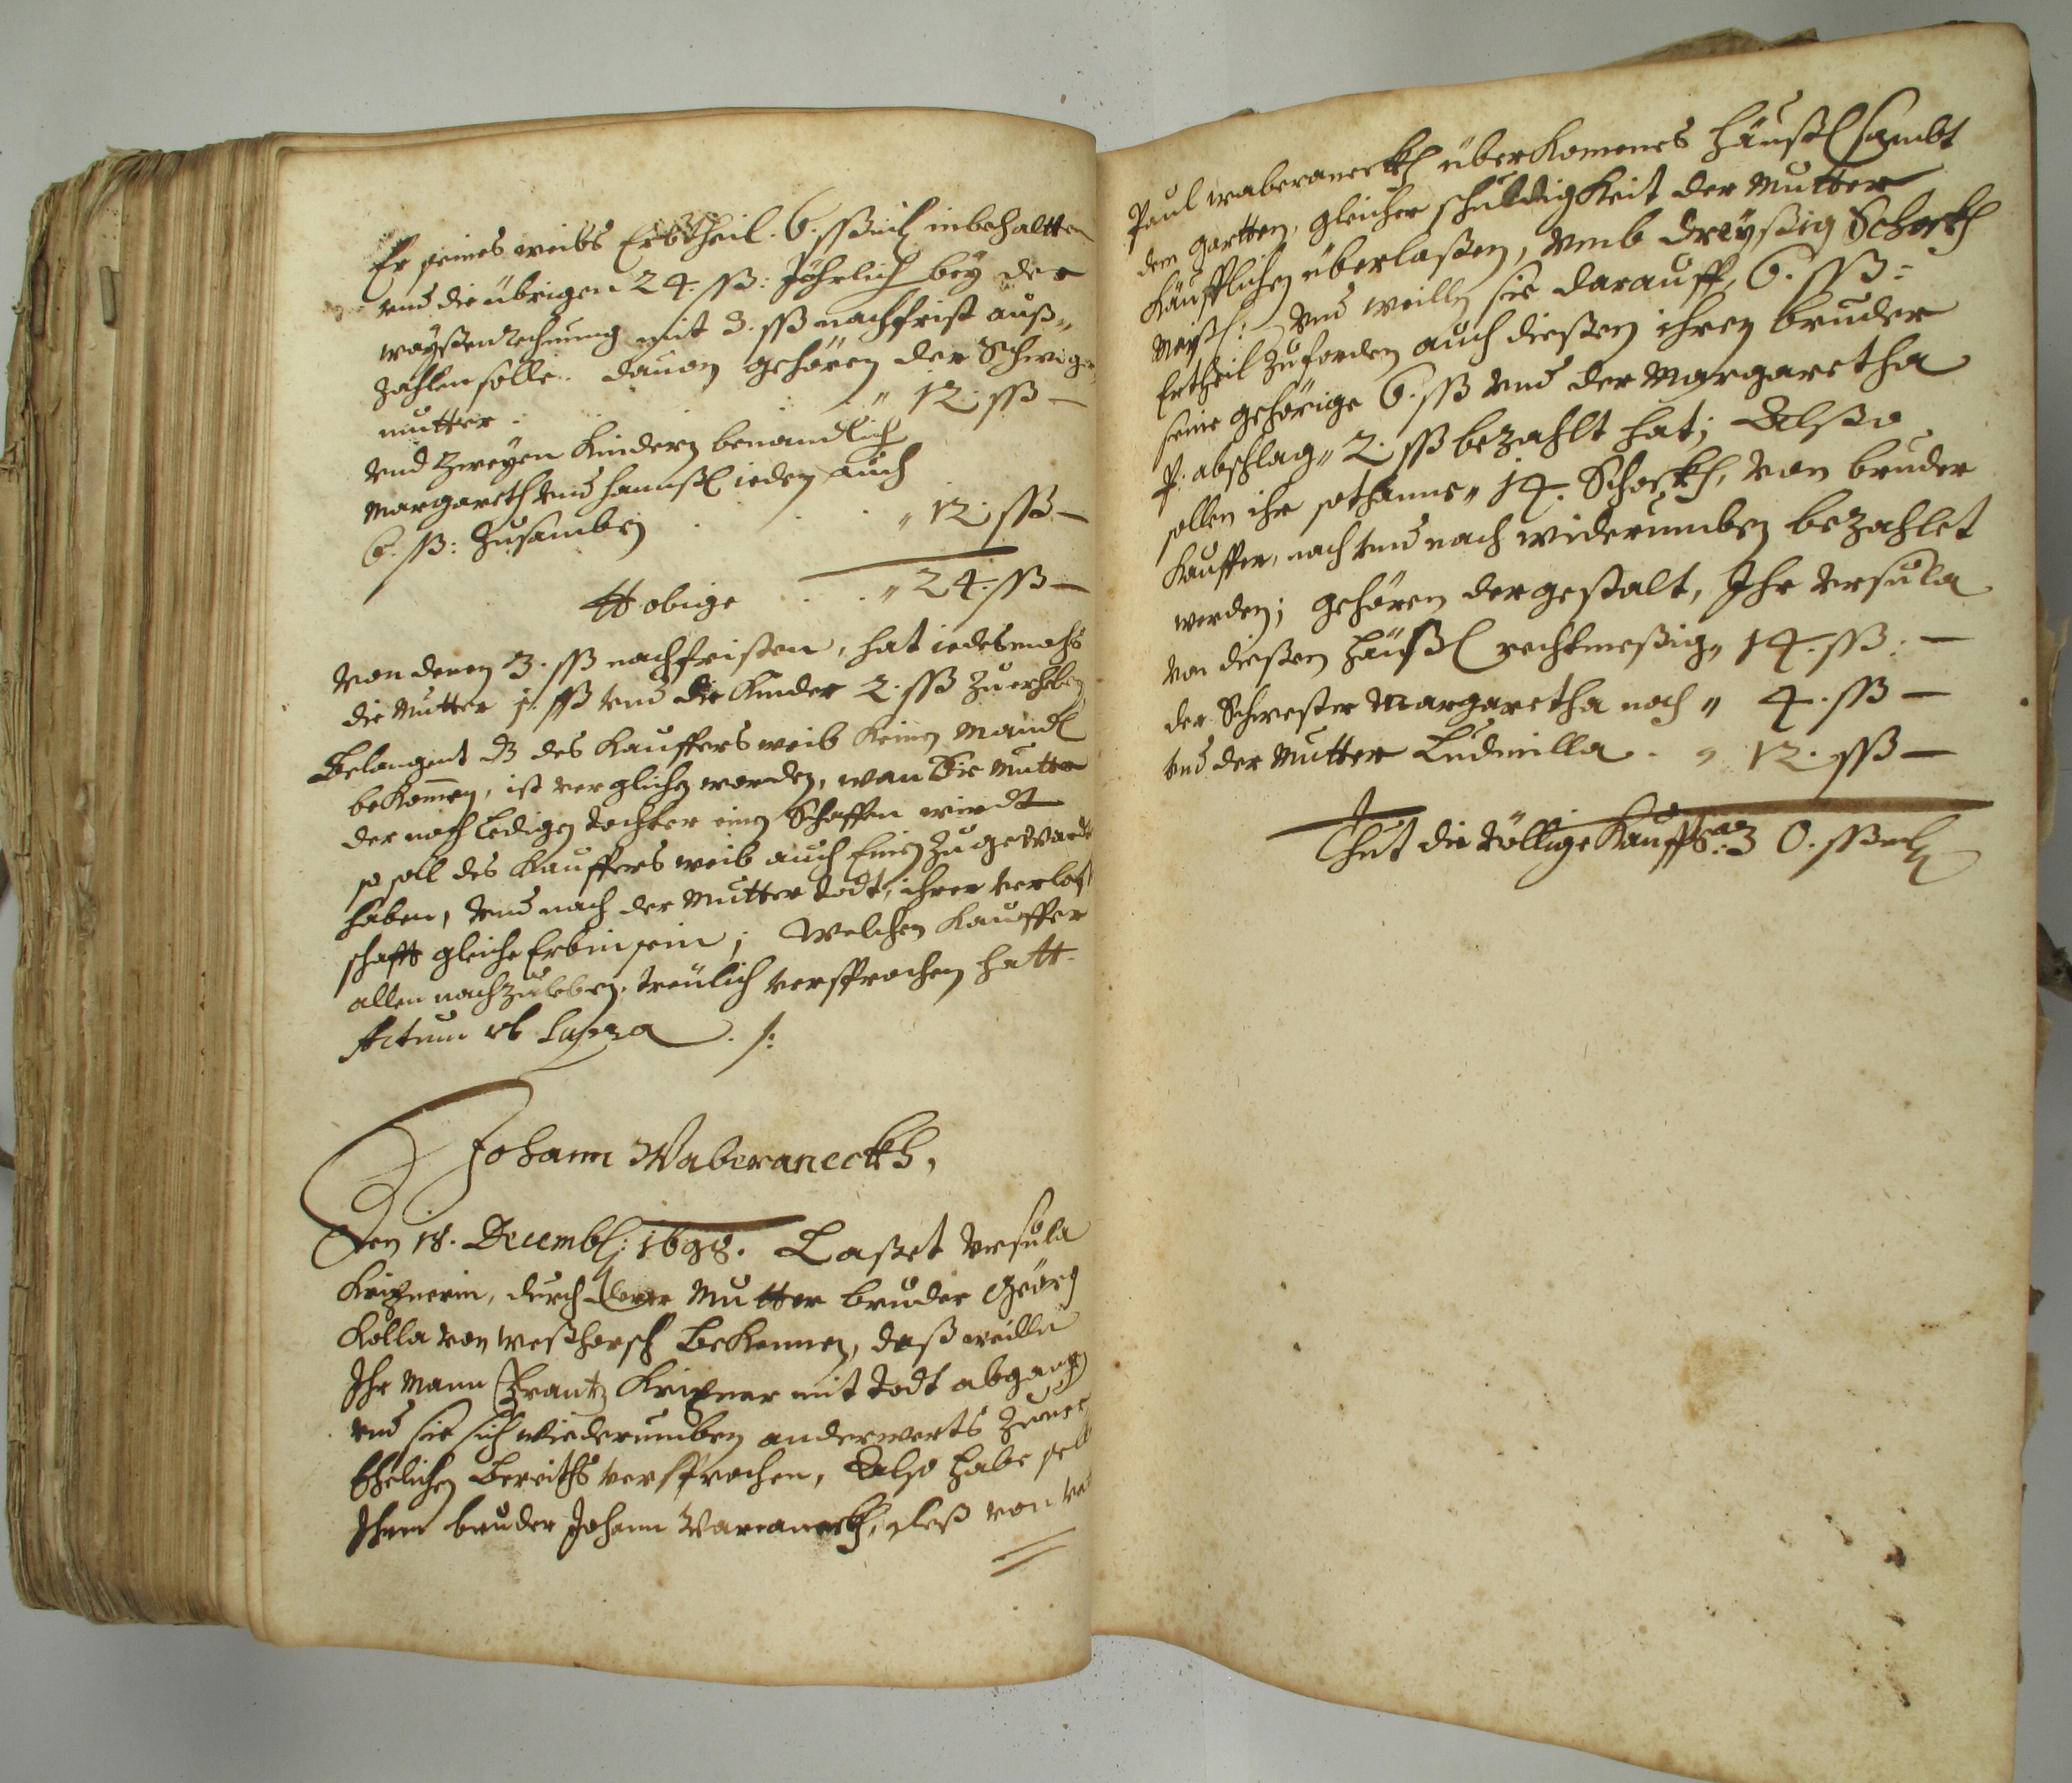 Er seines weibs Erbtheil. 6. ßß inbehaltten
vnd die übrigen 24. ßß: Jährlich bey der
waysßen Rechnung mit 3. ßß nachfrist auß„
zahlen solle. dauon gehören der Schwiger
mutter . . „ 12. ßß —
vnd Zweyen Kindern benandtlich
Margareth vnd Hannßl ieden auch
6. ßß: Zusamben . . . „ 12. ßß —
obige . . „ 24. ßß —
Von denen 3. ßß nachfristen, hat iedesmahls
die Mutter 1. ßß vnd die Kinder 2. ßß Zuerheben
Belangent dz des Kauffers weib Keinen
bekommen, ist verglichen worden, wan die Mutter
der noch ledigen tochter einen Schaffen wirdt
so soll des Kauffers weib auch Einen Zugewarten
haben, vnd nach der Mutter todt, ihrer verlaß
schafft gleiche Erbin sein; Welchen Kauffer
allen nachzuleben, treülich versprochen hatt.
Actum vt Supra ./:
Johann Waberaneckh,
Den 18. Decemb: 1698. Lasset Vrsula
durch Mutter bruder Geörg
Kolla von bekennen, daß weille
Ihr Mann Frantz mit todt abgangen
vnd sie sich wiederumben anderwerts
Ehelichen bereiths versprochen, Also habe
Ihren bruder Johann von
Paul waberaneckh überkomenes Häußl sambt
dem gartten, gleicher schuldigkeit der Mutter
Käufflichen überlaßen, vmb dreyßig Schockh
Meißl: Vnd weillen sie darauff, 6. ßß:
Ertheil Zufordern auch diesßen ihren bruder
seine gehörige 6. ßß vnd der Margaretha
p: abschlag „ 2. ßß bezahlt hat; Alßo
sollen ihr sothanne „ 14. Schockh, von bruder
Kauffer, nach vnd nach widerumben bezahlet
werden; gehören dergestalt, Ihr Vrsula
von diesßen Häußl rechtmeßig „ 14. ßß: —
der Schwester Margaretha noch „ 4. ßß —
vnd der Mutter Ludmilla . „ 12. ßß —
Thut die völlige Kauffs: 30. ßß